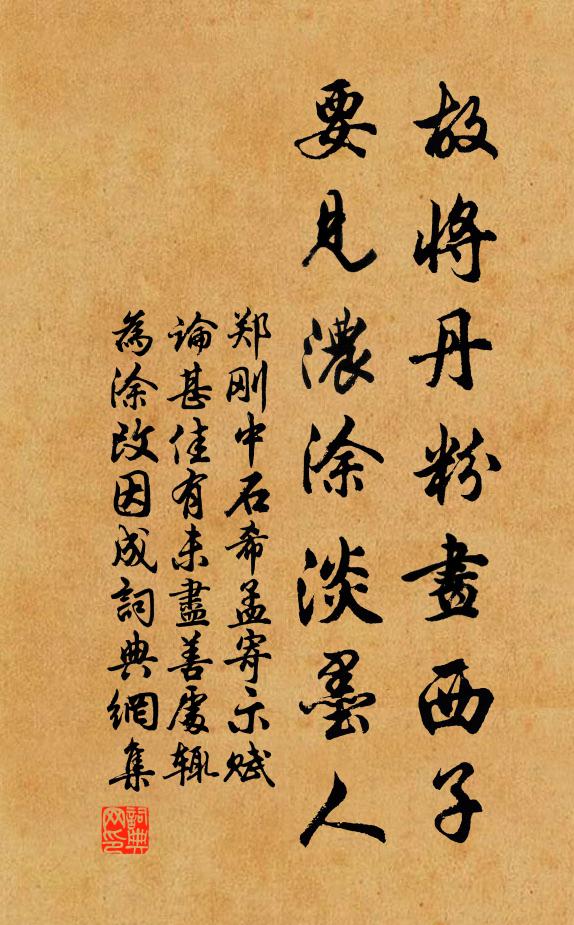 故将丹粉畫西子
要見濃涂淡墨人
郑刚中石希孟寄示赋
论甚佳有未盡善處辄
為涂改因成詞典網集
詞典网印